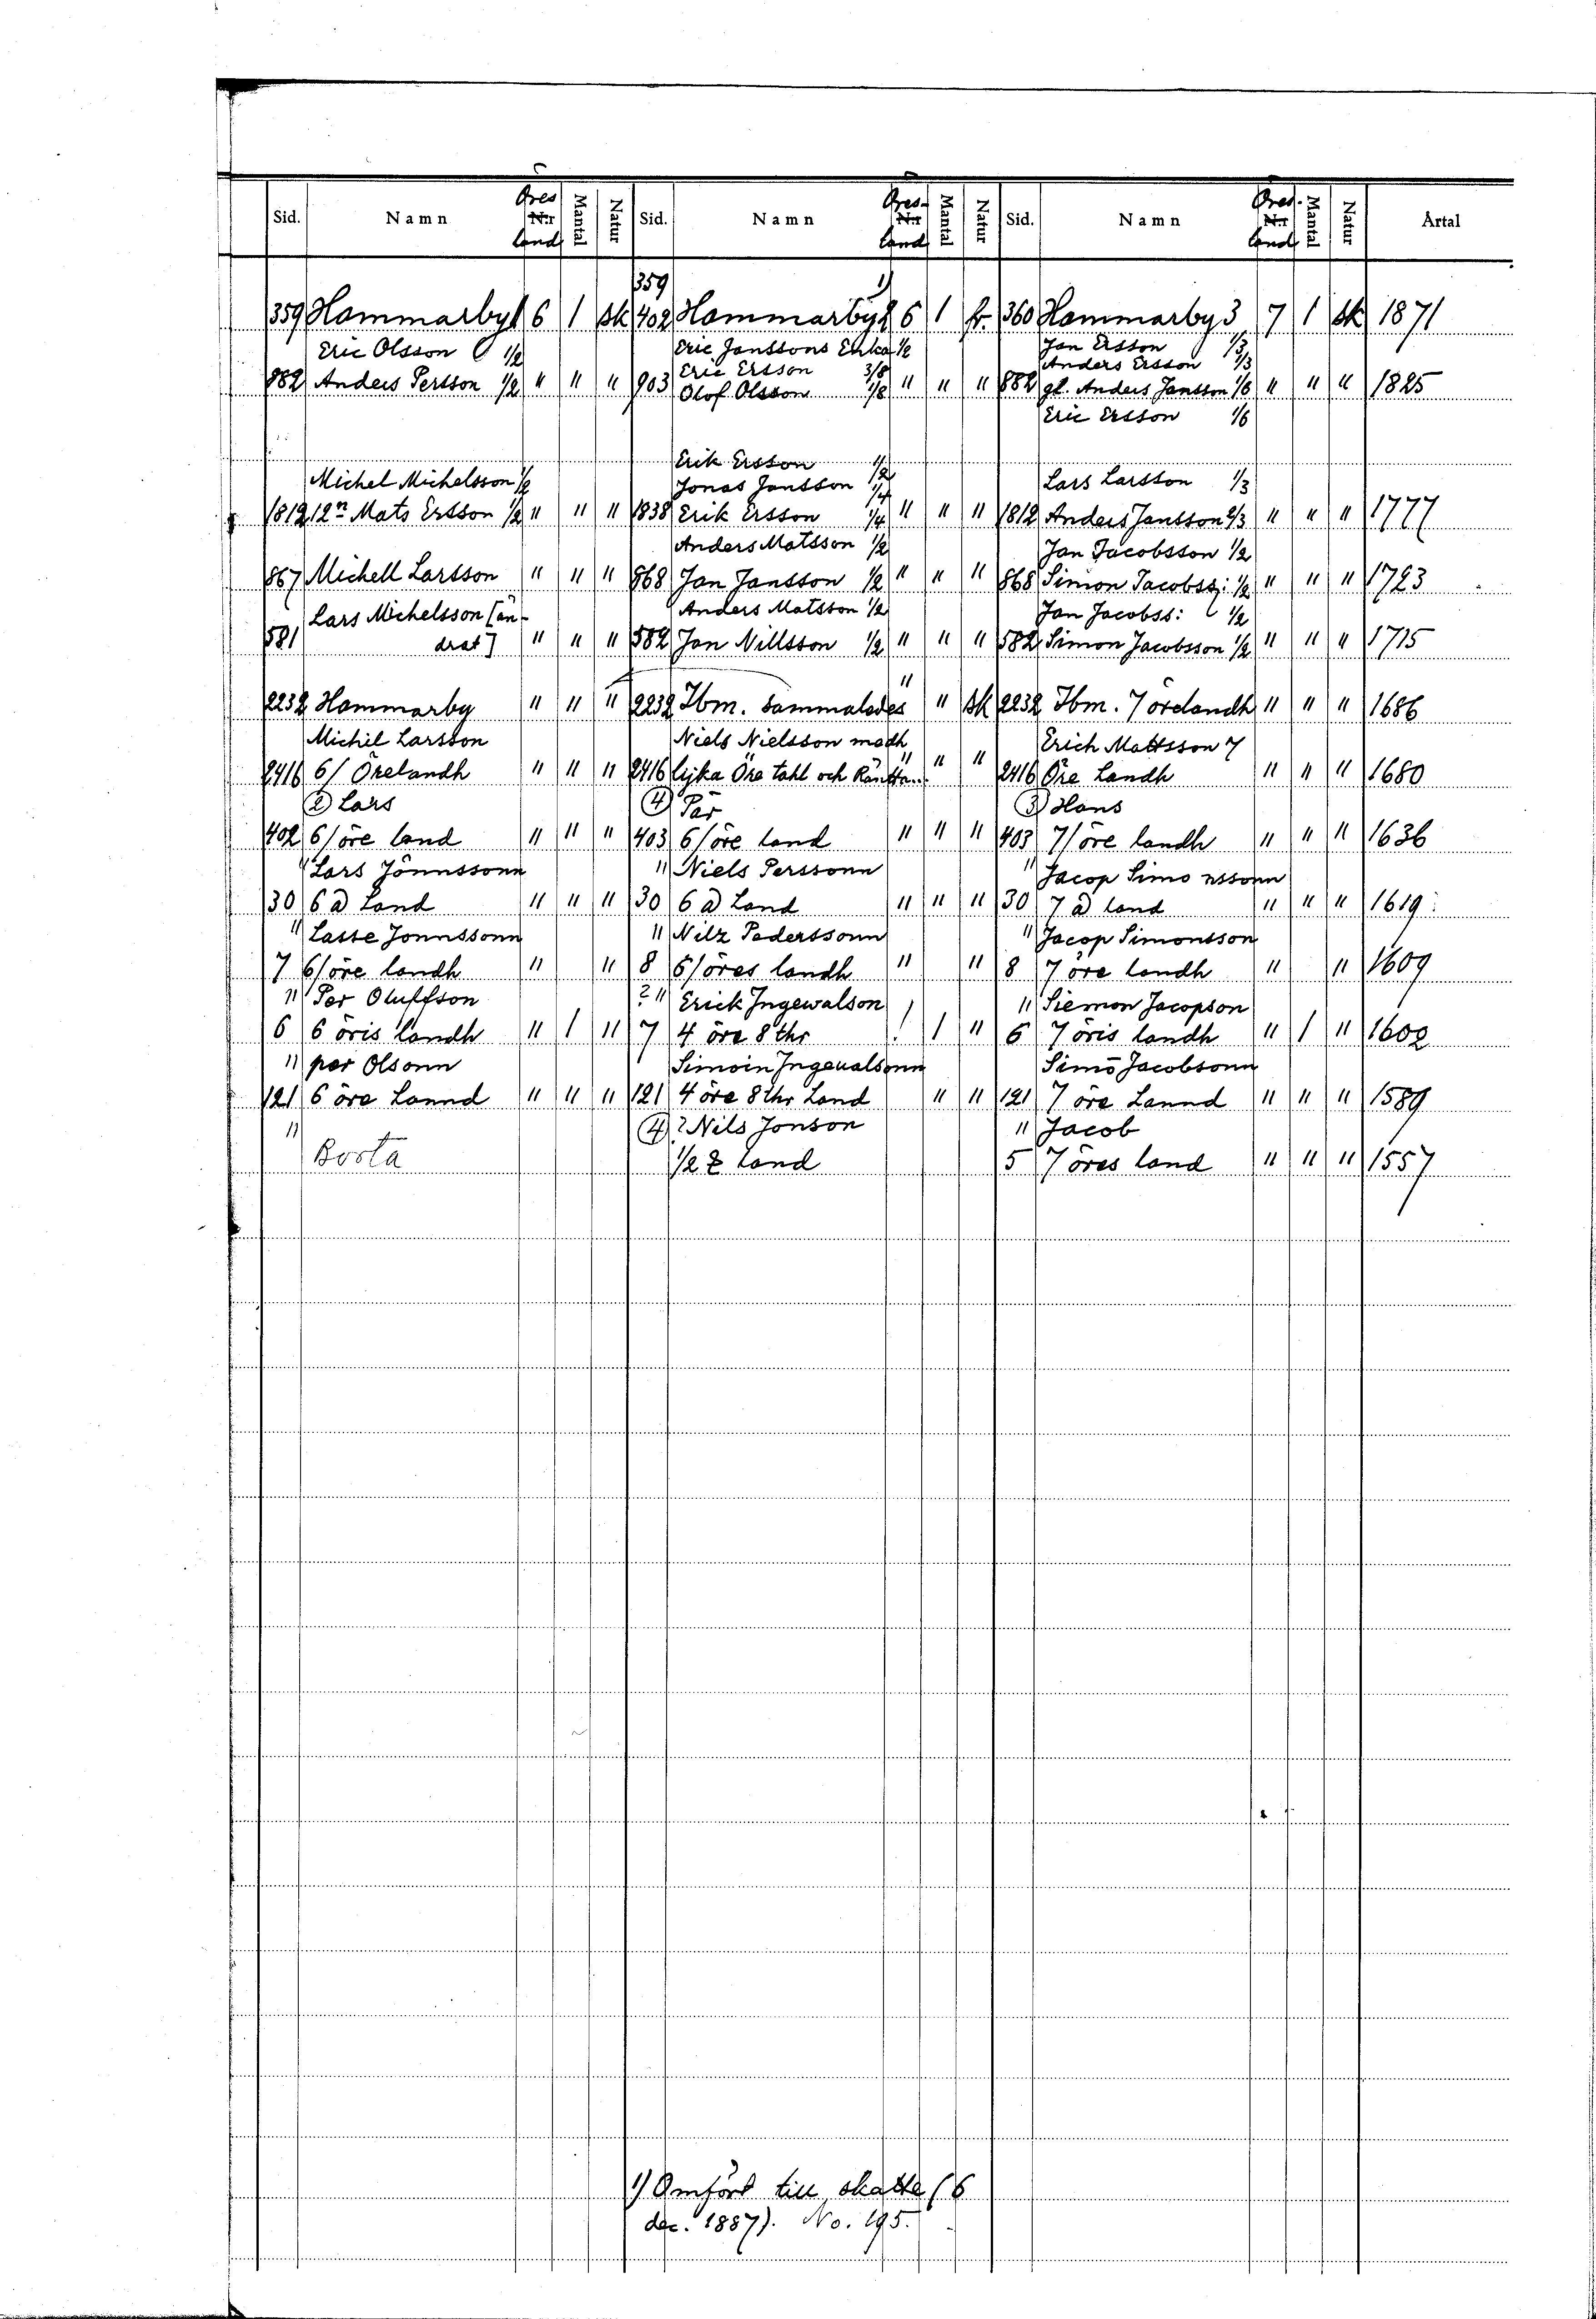 Sid. Namn Öres Nr land Mantal Natur Sid. Namn Öres Nr land Mantal Natur Sid. Namn Öres Nr land Mantal Natur Årtal
359 1)
359 Hammarby 1 6 1 sk 402 Hammarby 2 6 1 fr. 360 Hammarby 3 7 1 sk 1871
Eric Olsson 1/2 Eric Janssons Enka 1/2 Jan Ersson 1/3
Eric Ersson 3/8 Anders Ersson 1/3
882 Anders Persson 1/2 " " " 903 Olof Olsson 1/8 " " " 882 gl. Anders Jansson 1/6 " " " 1825
Eric Ersson 1/6
Erik Ersson 1/2
Michel Michelsson 1/2 Jonas Jansson 1/4 Lars Larsson 1/3
1812 12n Mats Ersson 1/2 " " " 1838 Erik Ersson 1/4 " " " 1812 Anders Jansson 2/3 " " " 1777
Anders Matsson 1/2 Jan Jacobsson 1/2
867 Michell Larsson " " " 868 Jan Jansson 1/2 " " " 868 Simon Jacobss: 1/2 " " " 1723
Lars Michelsson [än- Anders Matsson 1/2 Jan Jacobss: 1/2
581 drat] " " " 582 Jan Nillsson 1/2 " " " 582 Simon Jacobsson 1/2 " " " 1715
2232 Hammarby " " " 2232 Ibm. sammaledes " " sk 2232 Ibm. 7 örelandh " " " 1686
Michil Larsson Niels Nielsson medh Erich Mattsson 7
2416 6/ Örelandh " " " 2416 lijka Öre tahl och Räntta " " " 2416 Öre Landh " " " 1680
2) Lars 4) Pär 3) Hans
402 6/öre land " " " 403 6/öre land " " " 403 7/öre landh " " " 1636
" Lars Jönnssonn " Niels Perssonn " Jacop Simonssonn
30 6 a) Land " " " 30 6 a) Land " " " 30 7 a) land " " " 1619
" Lasse Jonnssonn " Nilz Pederssonn " Jacop Simonsson
7 6/öre landh " " 8 6/öres landh " " 8 7 öre landh " " 1609
" Per Oluffson ? " Erick Ingewalson " Siemon Jacopson
6 6 öris landh " 1 " 7 4 öre 8 thr ! 1 " 6 7 öris landh " 1 " 1602
" per Olsonn Simoin Ingeualsonn Simō Jacobsonn
121 6 öre Lannd " " " 121 4 öre 8 thr Land " " 121 7 öre Lannd " " " 1589
" 4) ? Nils Jonson " Jacob
Borta 1/2 land 5 7 öres land " " " 1557
1) Omfört till skatte (6
dec. 1887). No. 195.